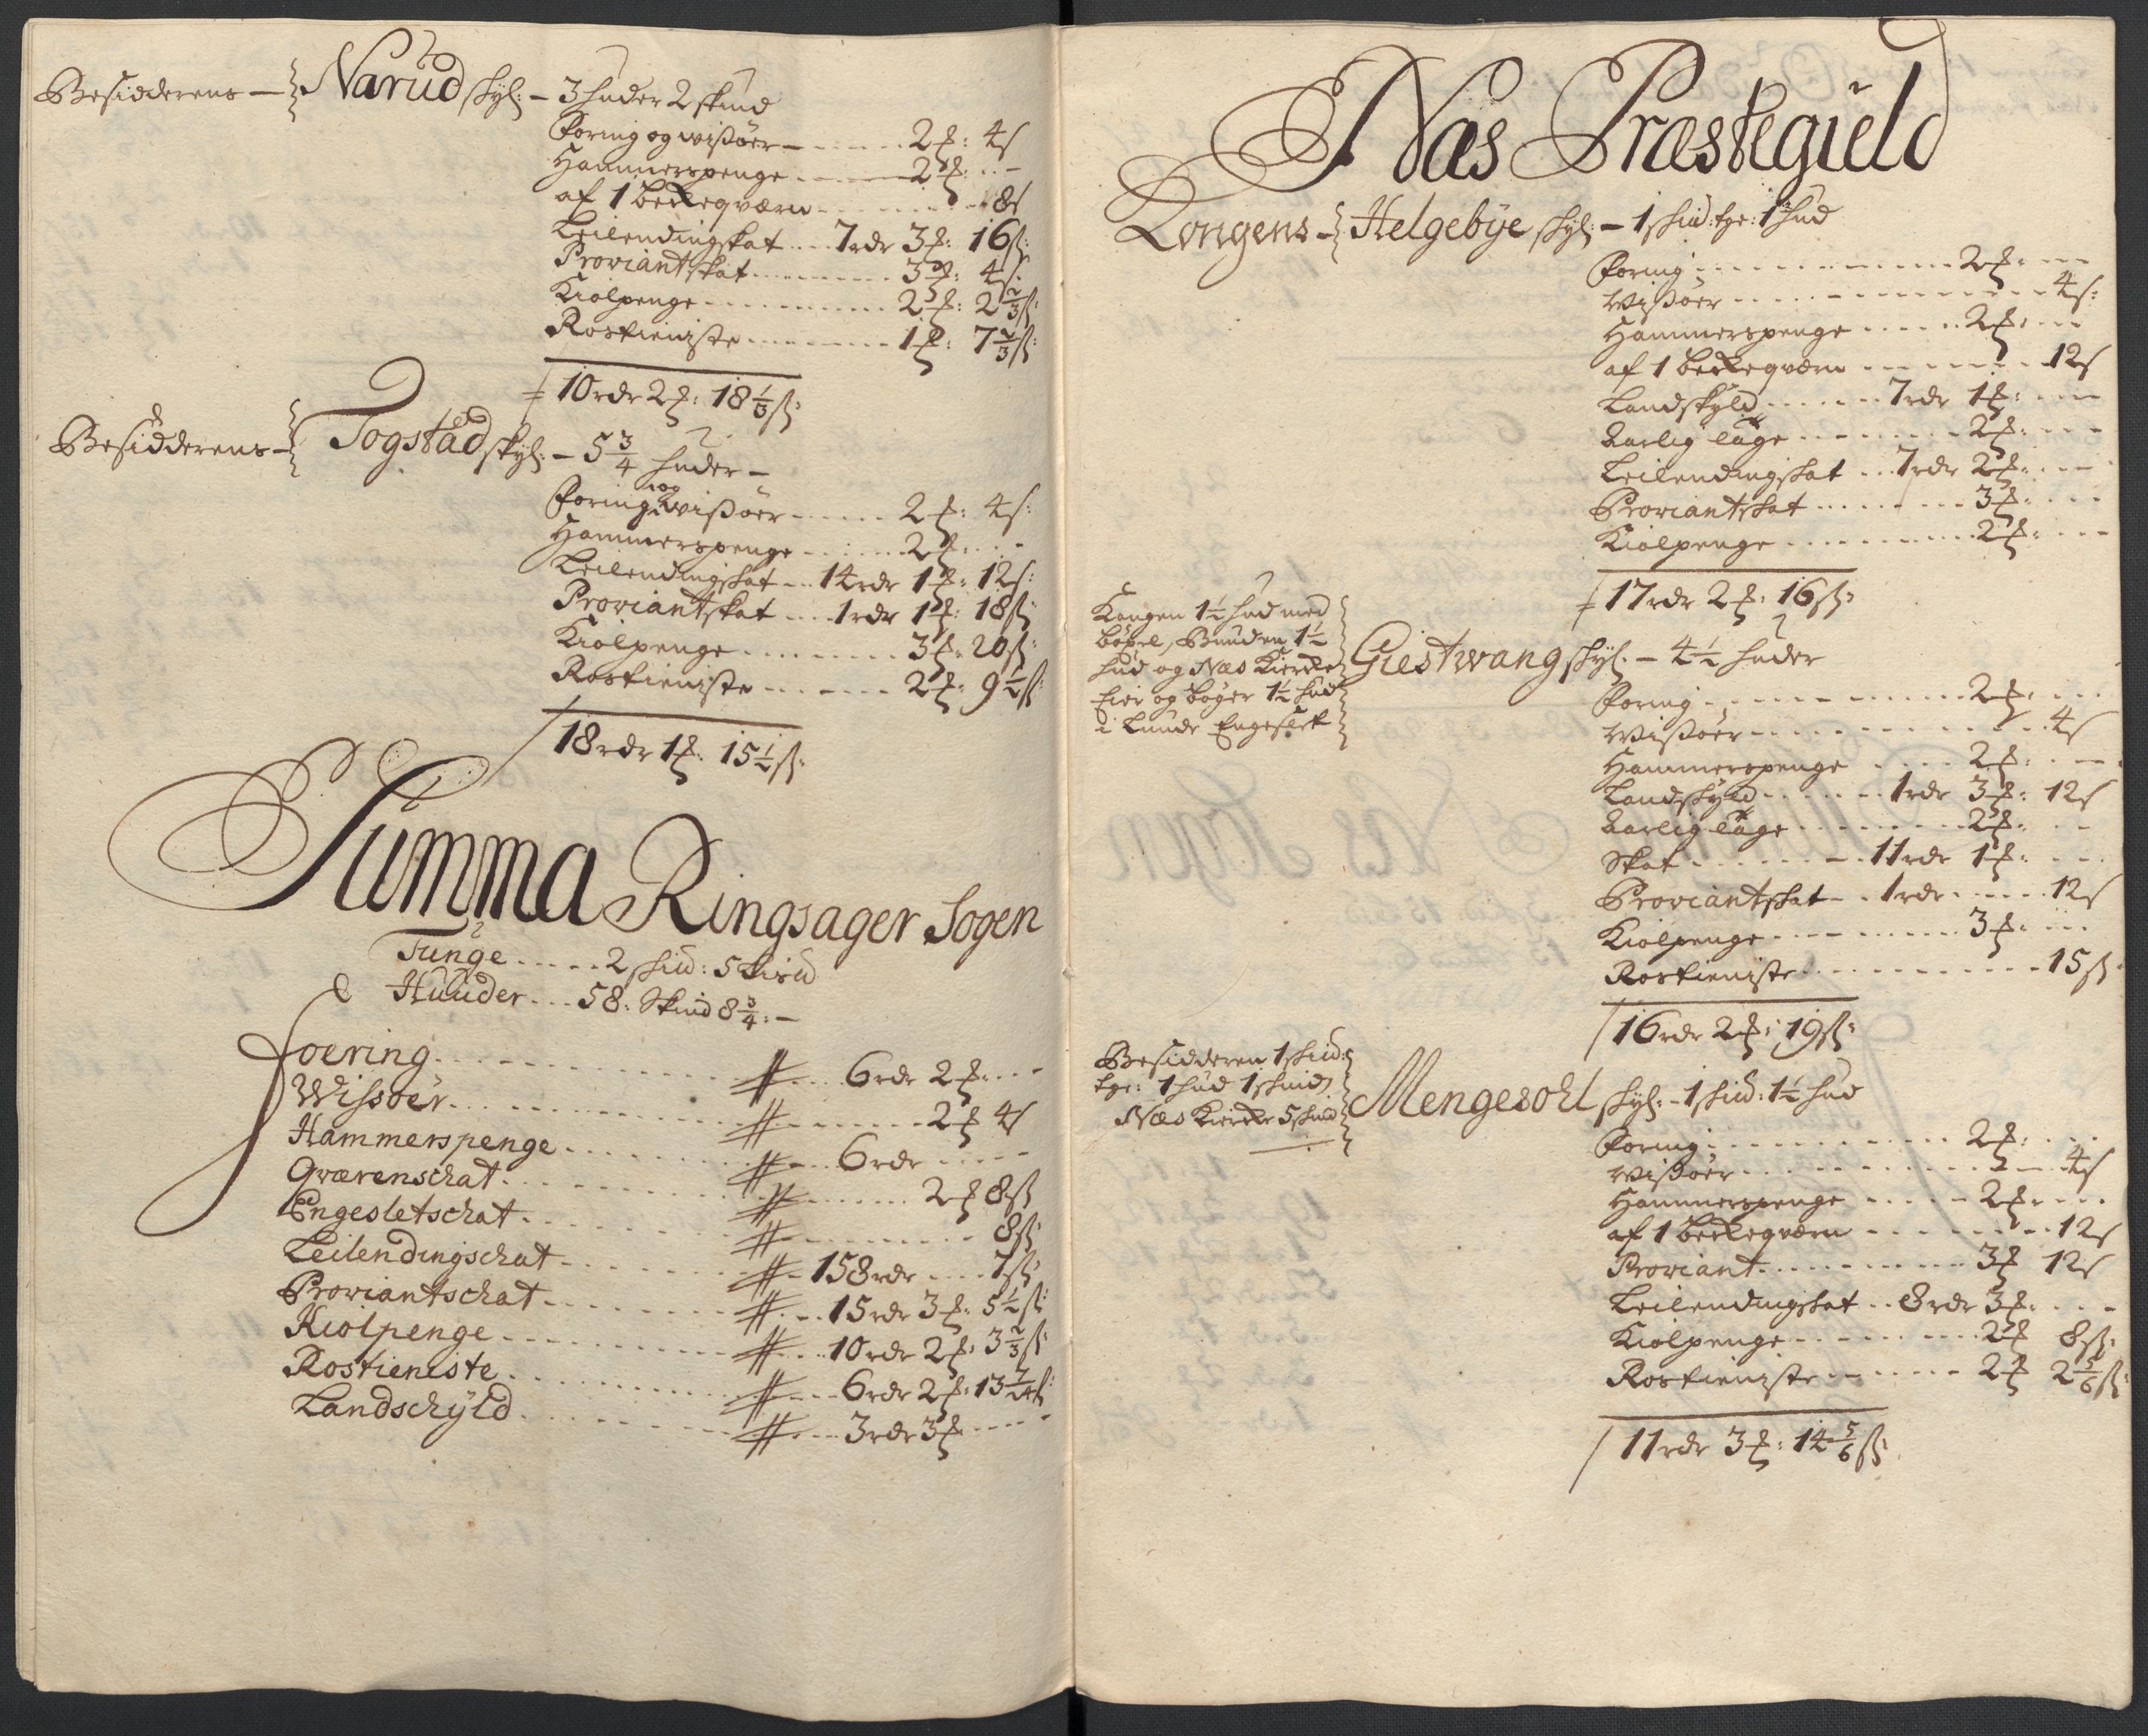 Besidderens – Narud skyl: – 3 huder 2 skind
Foring og wissöer – 2 ₰: 4 s
Hammerspenge – 2 ₰: –
af 1 beckeqværn – 8 s
Leilendingskat 7 rdr 3 ₰: 16 s:
Proviantskat 3 ₰: 4 s:
Kiolpenge 2 ₰: 2 2/3 s:
Rostieniste 1 ₰: 7 2/3 s:
10 rdr 2 ₰: 18 1/3 s:
Besidderens – Togstad skyl: – 5 3/4 huder –
Foring og wissöer 2 ₰: 4 s:
Hammerspenge 2 ₰: –
Leilendingskat 14 rdr 1 ₰: 12 s:
Proviantskat 1 rdr 1 ₰: 18 s:
Kiolpenge 3 ₰: 20 s:
Rostieniste 2 ₰: 9 1/2 s:
18 rdr 1 ₰: 15 1/2 s:
Summa Ringsager Sogen
Tunge 2 skid: 5 Lisd
Huuder 58: Skind 8 3/4: –
Foering 6 rdr 2 ₰ –
Wissöer 2 ₰ 4 s
Hammerspenge 6 rdr –
Qværenschat 2 ₰ 8 s
Engesletschat 8 s:
Leilendingschat 158 rdr 7 s:
Proviantschat 15 rdr 3 ₰: 5 1/2 s:
Kiolpenge 10 rdr 2 ₰: 3 2/3 s:
Rostieniste 6 rdr 2 ₰: 13 7/24 s:
Landschyld 3 rdr 3 ₰ –
Næs Præstegield
Kongens – Helgebye skyl: – 1 skid: tge: 1 hud
Foring 2 ₰: –
Wissöer 4 s:
Hammerspenge 2 ₰: –
af 1 beckeqværn 12 s
Landskyld 7 rdr 1 ₰: –
Aarlig tage 2 ₰: –
Leilendingskat 7 rdr 2 ₰: –
Proviantskat 3 ₰: –
Kiolpenge 2 ₰: –
17 rdr 2 ₰: 16 s:
Kongen 1 1/2 hud med
böxel, Bunden 1 1/2
hud og Næs Kiercke
Eier og böxer 1 1/2 hud
i Lunde Engeslet
Giestwang skyl: – 4 1/2 huder
Foring 2 ₰: –
Wissöer 4 s
Hammerspenge 2 ₰: –
Landskyld 1 rdr 3 ₰: 12 s
Aarlig tage 2 ₰: –
Skat 11 rdr 1 ₰: –
Proviantskat 1 rdr 12 s
Kiolpenge 3 ₰: –
Rostieniste 15 s:
16 rdr 2 ₰: 19 s:
Besidderen 1 skid:
tge: 1 hud 1 skind
Næs Kiercke 5 skind
Mengesohl skyl: – 1 skid: 1 1/2 hud
Foring 2 ₰: –
Wissöer 4 s
Hammerspenge 2 ₰: –
af 1 beckeqværn 12 s
Proviant 3 ₰ 12 s
Leilendingskat 8 rdr 3 ₰: –
Kiolpenge 2 ₰ 8 s:
Rostieniste 2 ₰ 2 5/6 s:
11 rdr 3 ₰: 14 5/6 s: